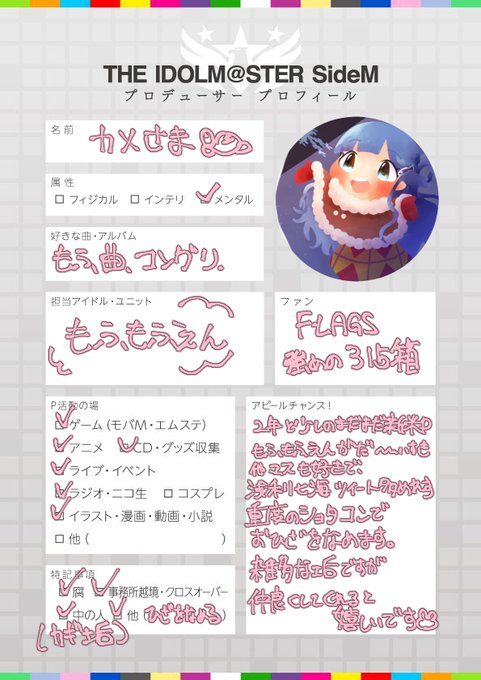 THE IDOLM@STER SideM
プロデューサー プロフィール
名前
カメさま
属性
フィジカル インテリ メンタル
好きな曲・アルバム
もう、曲、コングリ。
担当アイドル・ユニット
もう、もうえん
ファン
FLAGS
強めの315箱
P活動の場
ゲーム(モバM・エムステ)
アニメ CD・グッズ収集
ライブ・イベント
ラジオ・ニコ生 コスプレ
イラスト・漫画・動画・小説
他( )
特記事項
腐 事務所越境・クロスオーバー
中の人 他(ひざをなめる)
アピールチャンス!
2年と少しのまだまだ未熟P
もふ、もうえんがだ〜いすき
他マスも好きで、
浅利七海ツイート多めです
重度のショタコンで
おひざをなめます。
雑多な垢ですが
仲良くしてくれると
嬉しいです